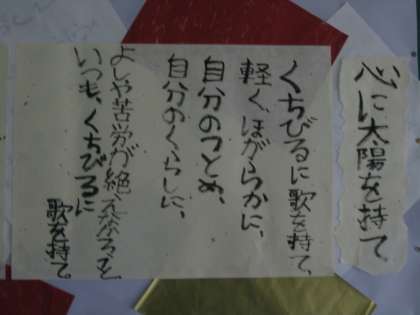 心に太陽を持て
くちびるに歌を持て、
軽く、ほがらかに、
自分のつとめ、
自分のくらしに、
よしや苦労が絶えなかろうと
いつも、くちびるに
歌を持て。